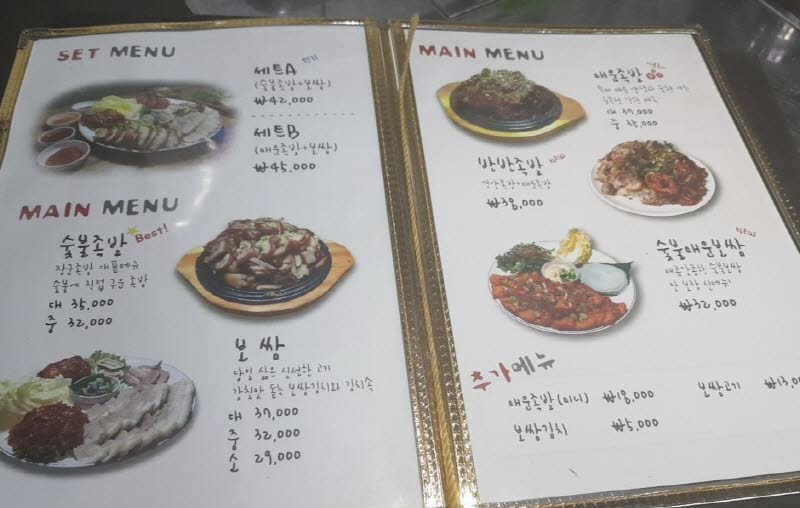 SET MENU
세트A 인기
(숯불족발+보쌈)
₩42,000
세트B
(매운족발+보쌈)
₩45,000
MAIN MENU
숯불족발 Best!
장군족발 대표메뉴
숯불에 직접 구운 족발
대 35,000
중 32,000
보쌈
당일 삶은 신선한 고기
감칠맛 돋는 보쌈김치와 김치속
대 37,000
중 32,000
소 29,000
MAIN MENU
매운족발
대 37,000
중 35,000
반반족발 NEW
₩38,000
NEW
숯불매운보쌈
매콤달콤한 숯불보쌈
₩32,000
추가메뉴
매운족발(미니) ₩18,000 보쌈고기
보쌈김치 ₩5,000